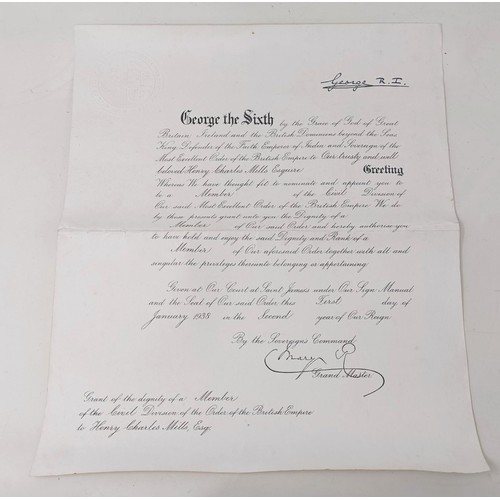 George R.I.
George the Sixth by the Grace of God of Great
Britain, Ireland and the British Dominions beyond the Seas
King, Defender of the Faith, Emperor of India and Sovereign of the
Most Excellent Order of the British Empire to Our trusty and well
beloved Henry Charles Mills Esquire Greeting
Whereas We have thought fit to nominate and appoint you to
be a Member of the Civil Division of
Our said Most Excellent Order of the British Empire We do
by these presents grant unto you the Dignity of a
Member of Our said Order and hereby authorise you
to have hold and enjoy the said Dignity and Rank of a
Member of Our aforesaid Order together with all and
singular the privileges thereunto belonging or appertaining
Given at Our Court at Saint James's under Our Sign Manual
and the Seal of Our said Order this First day of
January 1938 in the Second year of Our Reign
By the Sovereign's Command
Mary R
Grand Master
Grant of the dignity of a Member
of the Civil Division of the Order of the British Empire
to Henry Charles Mills, Esq.